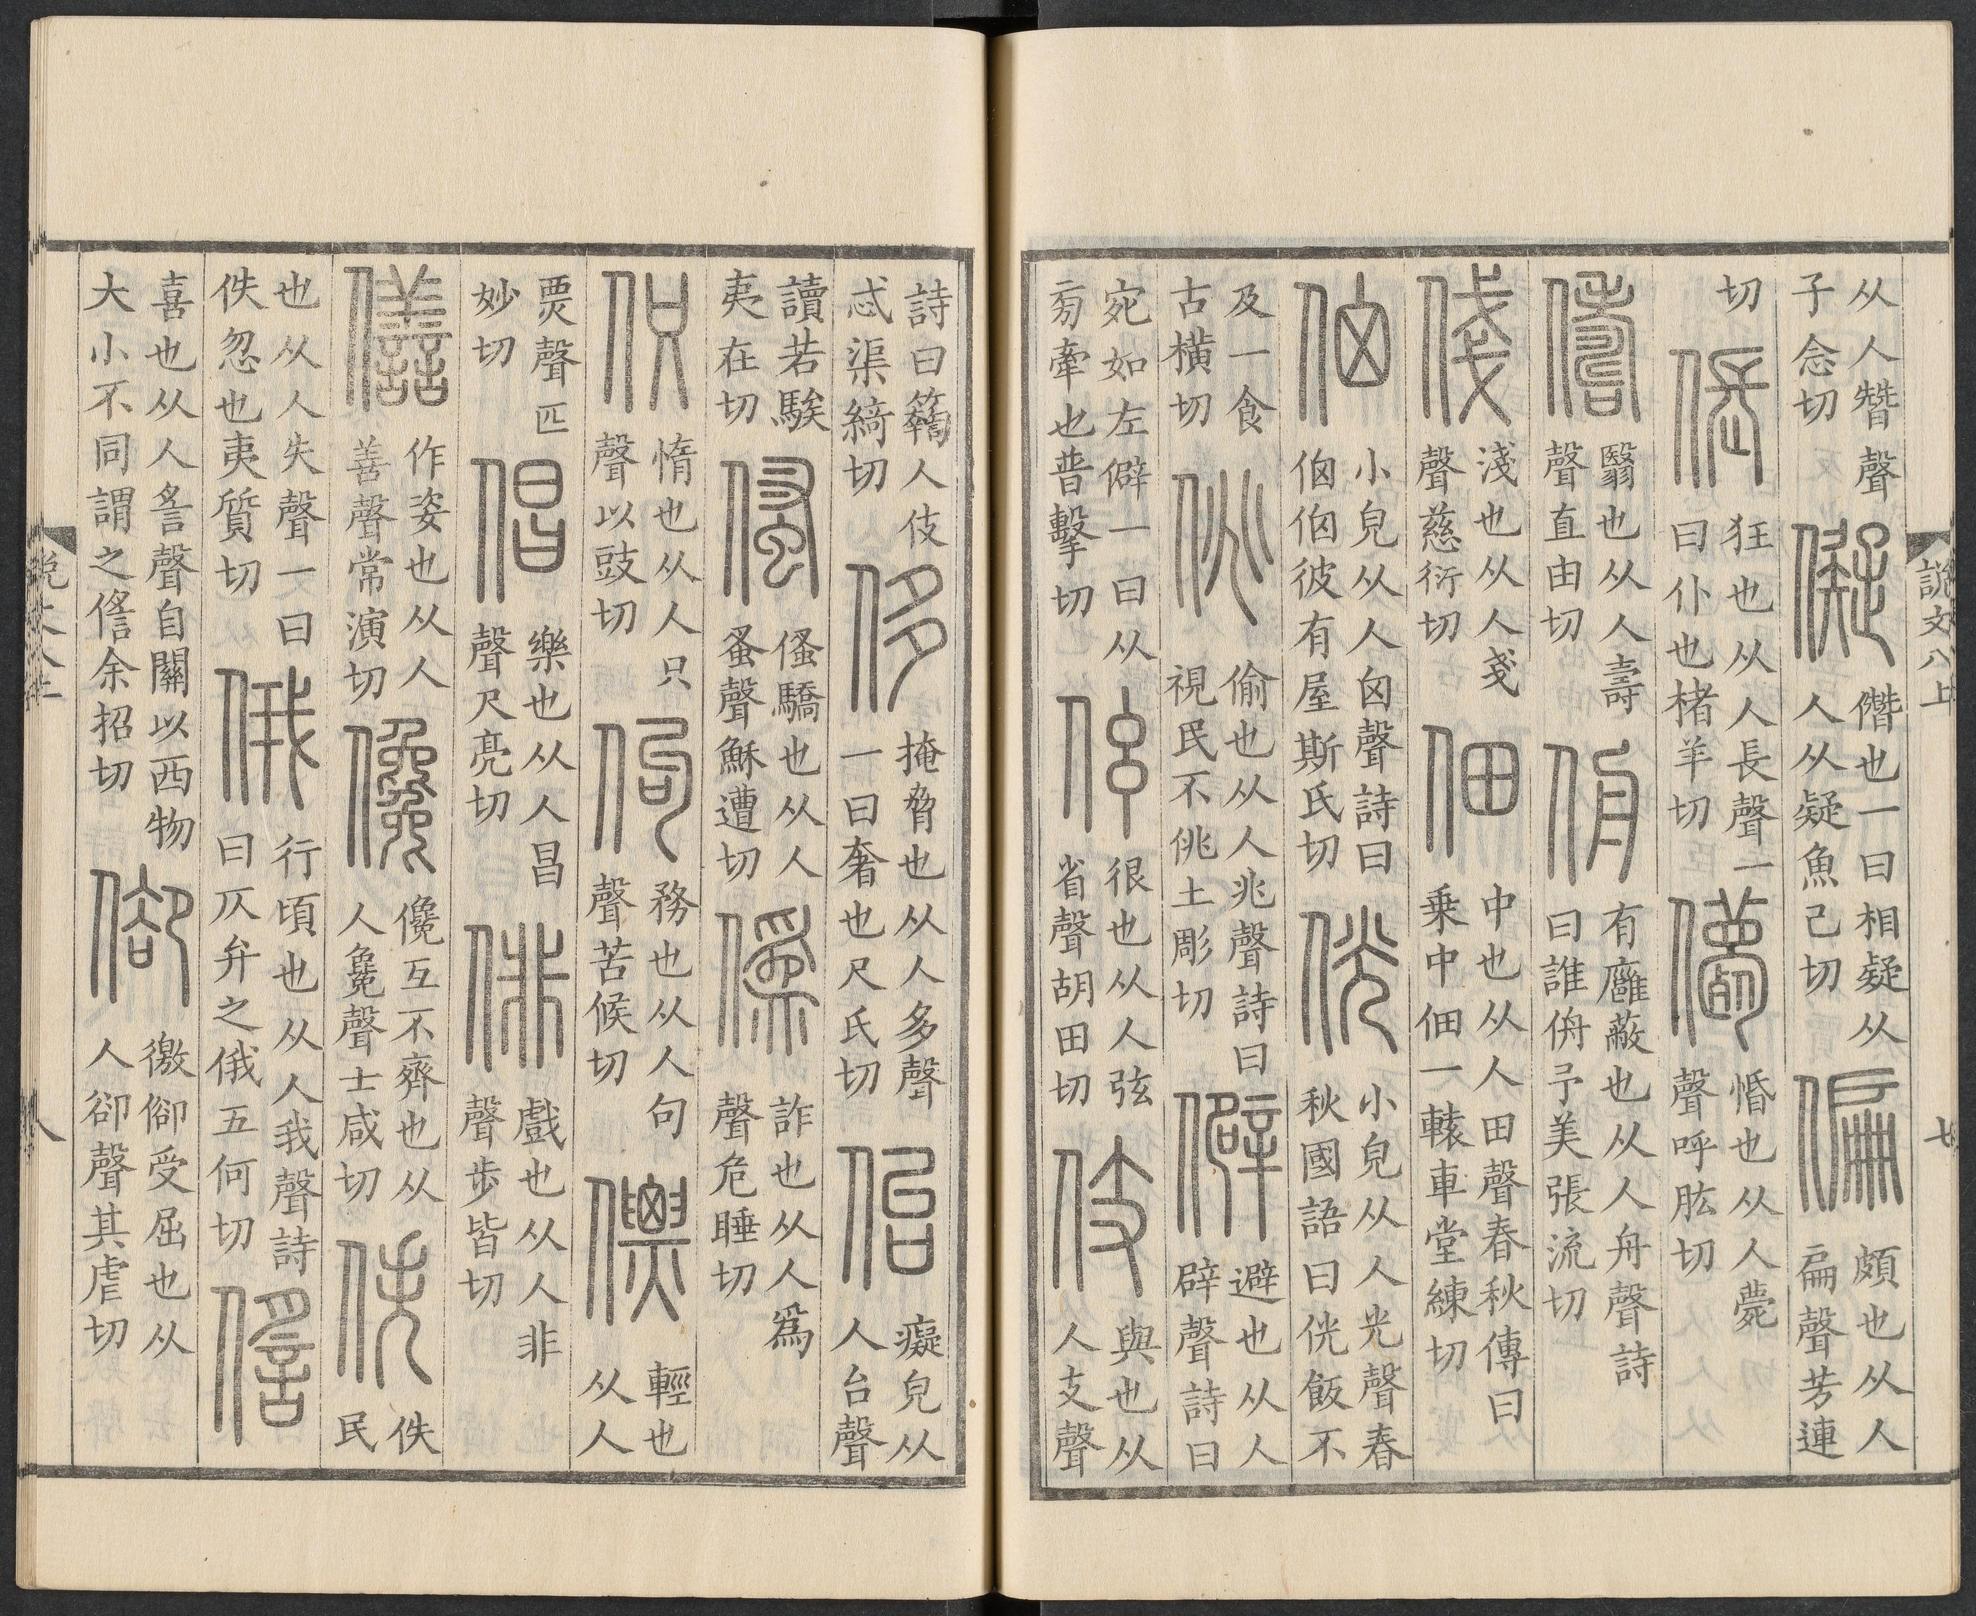 說文八上
七
从人朁聲
子念切
儗
僭也一曰相疑从
人从疑魚己切
偏
頗也从人
扁聲芳連
切
倀
狂也从人長聲一
曰仆也楮羊切
儚
惛也从人薨
聲呼肱切
儔
翳也从人壽
聲直由切
侜
有廱蔽也从人舟聲詩
曰誰侜予美張流切
俴
淺也从人戔
聲慈衍切
佃
中也从人田聲春秋傳曰
乗中佃一轅車堂練切
伵
小皃从人囟聲詩曰
伵伵彼有屋斯氏切
侊
小皃从人光聲春
秋國語曰侊飯不
及一食
古橫切
佻
偷也从人兆聲詩曰
視民不佻土彫切
僻
避也从人
辟聲詩曰
宛如左僻一曰从
㫄牽也普擊切
伭
很也从人弦
省聲胡田切
伎
與也从
人支聲
詩曰䉛人伎
忒渠綺切
侈
掩脅也从人多聲
一曰奢也尺氏切
佁
癡皃从
人台聲
讀若騃
夷在切
傜
傜驕也从人
蚤聲穌遭切
僞
詐也从人爲
聲危睡切
伿
惰也从人只
聲以豉切
佝
務也从人句
聲苦候切
僄
輕也
从人
㶾聲匹
妙切
倡
樂也从人昌
聲尺亮切
俳
戲也从人非
聲步皆切
僐
作姿也从人
善聲常演切
儳
儳互不齊也从
人毚聲士咸切
佚
佚民
也从人失聲一曰
佚忽也夷質切
俄
行頃也从人我聲詩
曰仄弁之俄五何切
㒡
喜也从人䚻聲自關以西物
大小不同謂之㒡余招切
㑢
徼㑢受屈也从
人卻聲其虐切
說文八上
八